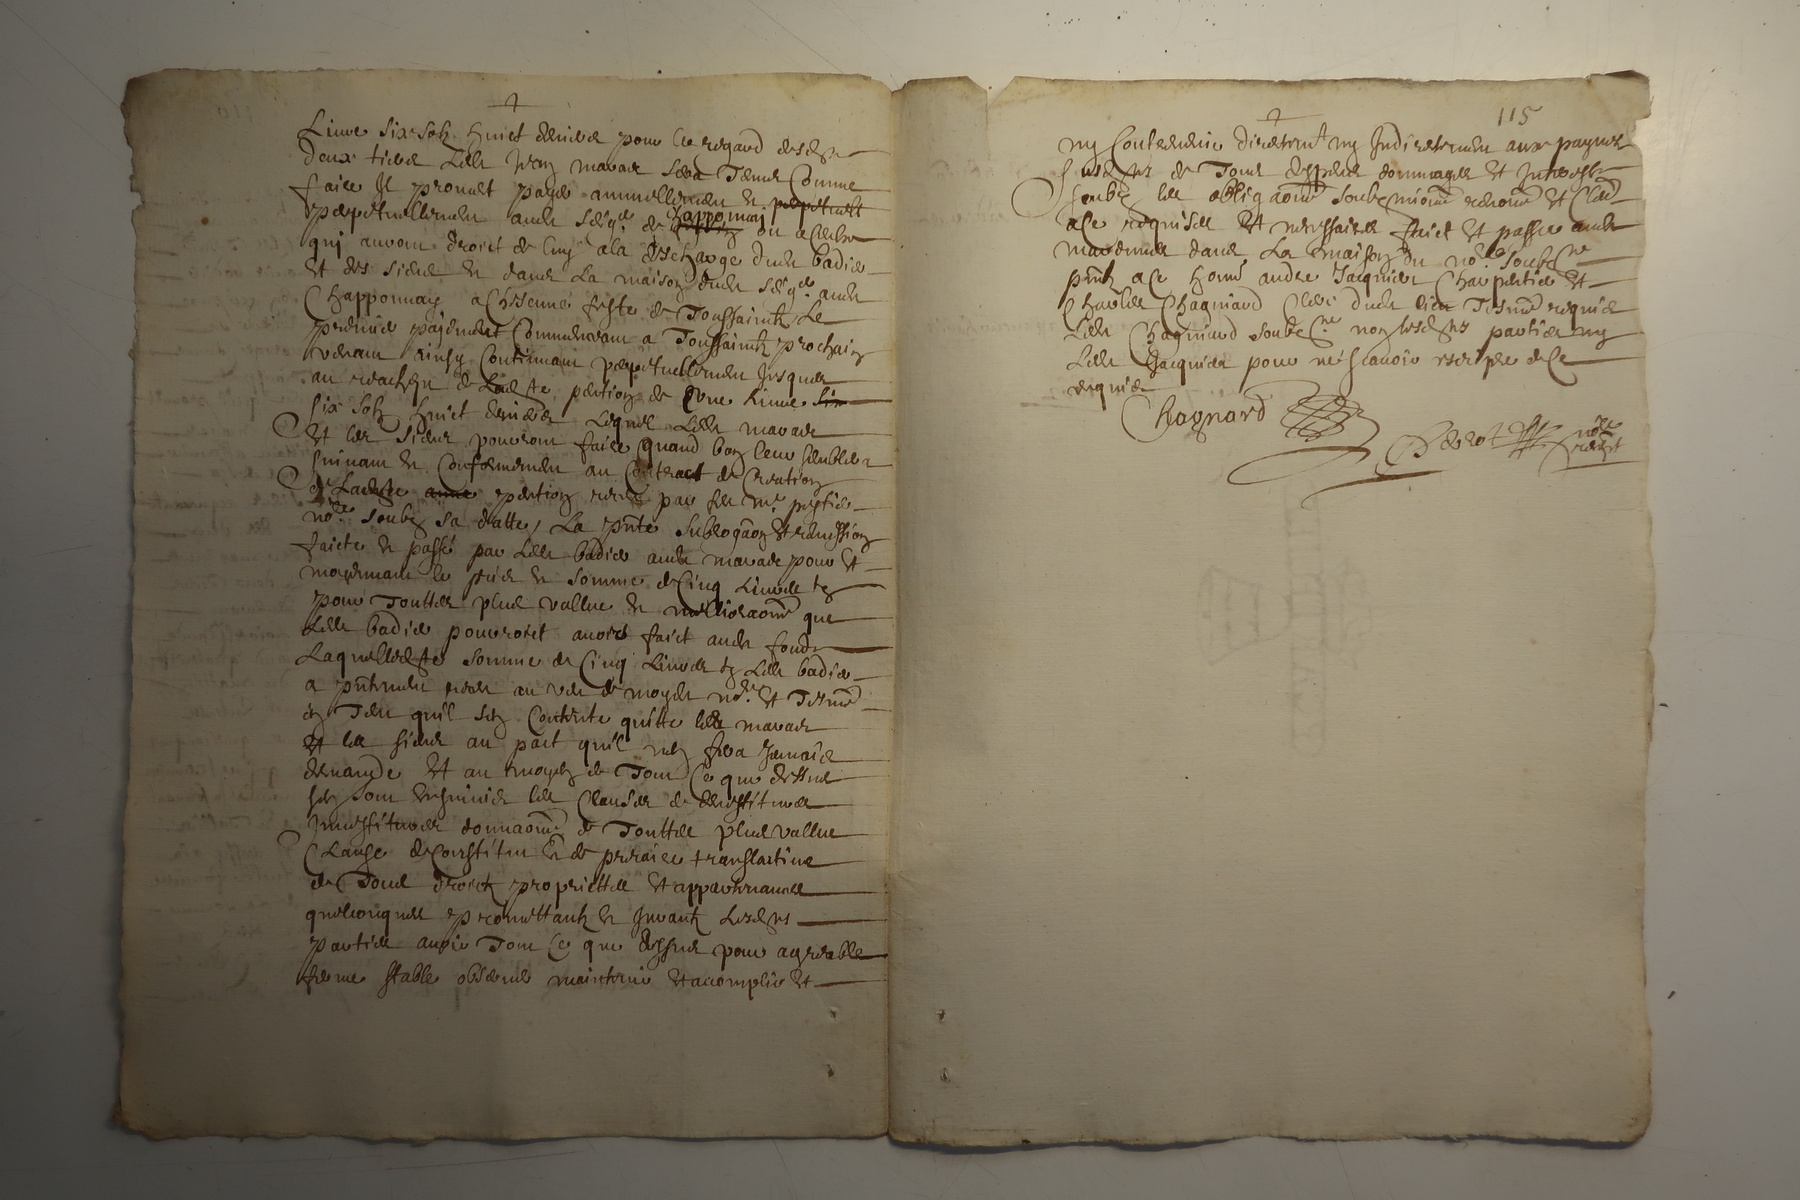 Livre six solz huict deniers pour le regard desd
deux tiers Led Jean mavare sera Tenu Comme
faire Il promet payer annuellement et perpetuell
perpetuellement aud seigr de Chapponnay ou a Ceulx
qui auront droict de luy a la descharge dud badier
et des siens et dans La maison dud seigr aud
Chapponnay a Chacune feste de Toussainctz Le
premier payement Commencant a Toussainctz prochain
venant ainsy Continuant perpetuellement Jusques
au reachept de Lad pention de Une Livre six
six solz huict deniers Lequel Led mavare
et les siens pourront faire quand bon leur semblera
suivant et Conformement au Contract de Creation
de Lad pention receu par feu Me
nore soubz sa datte, La pnte Subrogaon et remission
faicte et passé par Led badier aud mavare pour et
moyennant le prix et somme de Cinq Livres tz
pour Touttes plus vallue et mellioraons que
Led badier pourroict avoir faict aud fondz
Laquelle somme de Cinq Livres tz Led badier
a pntement receu au veu de moyd nore et Tesmoins
en Tell quil sen Contente quitte led mavare
et les siens au pact quil nen fera Jamais
demande Et au moyen de Tout Ce que dessus
sen sont ensuivies les Clauses de devestitures
Investitures donnaons de Touttes plus vallue
Clause de Constitut et de precaire translative
de Tous droictz propriettes et appartenances
quelconques promettantz et Jurantz Lesd
parties avoir Tout Ce que dessus pour agreable
ferme stable observer maintenir et accomplir et
115
ny Contrevenir directemt ny Indirectement aux peynes
de Tous despens dommages et Interestz
soubz les obligaons soubzmions renons et Claus
a Ce requises et necessaires faict et passé aud
dans La maison du nore soubzne
pntz a Ce Honn andre Jacquier Charpentier et
Charles Chagniard Clerc dud lieu Tesmoins requis
Led Chagniard soubzne non lesd parties ny
Led Jacquier pour ne scavoir escripre de Ce
requis
Chagnard
nore